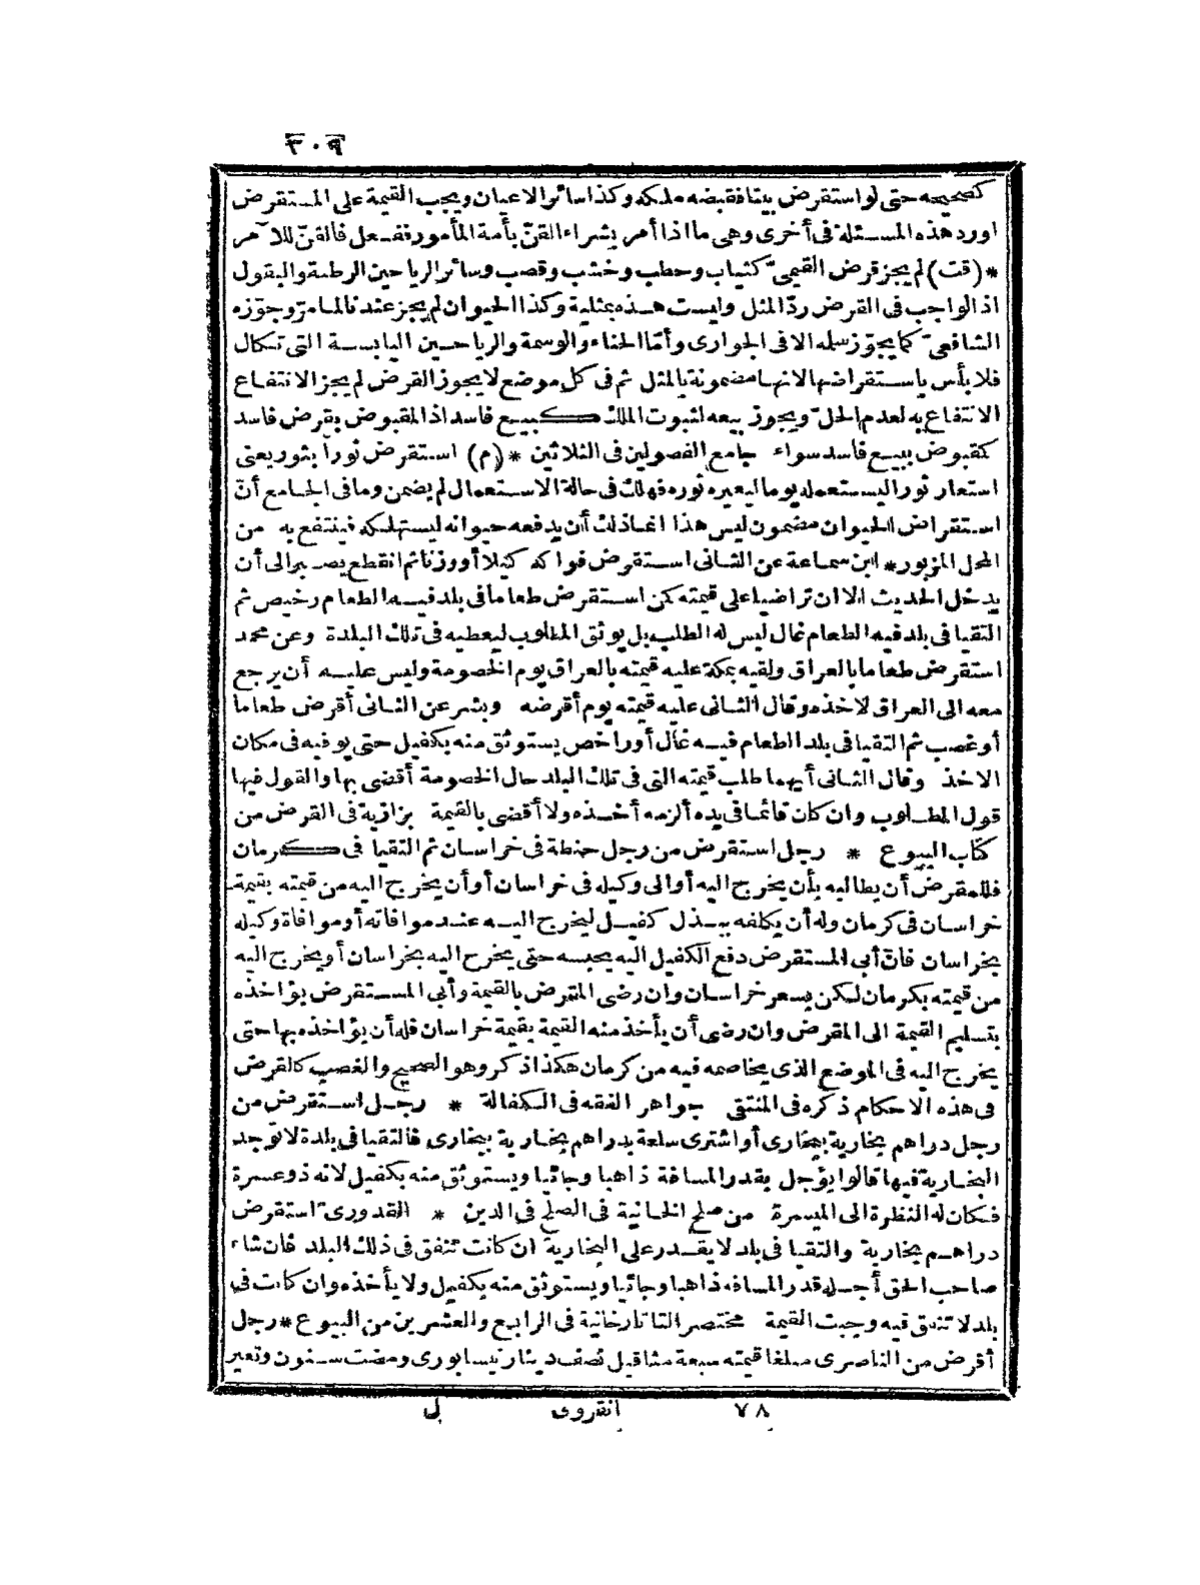 ٣٠٩
كصحيحه حتى لو استقرض بيتا فقبضه ملكه وكذا سائر الاعيان ويجب القيمة على المستقرض
اورد هذه المسئلة فى أخرى وهى ما اذا أمر بشراء القنّ بأمة المأمور ففعل فالقنّ للآمر
* (قت) لم يجز قرض القيمىّ كثياب وحطب وخشب وقصب وسائر الرياحين الرطبة والبقول
اذ الواجب فى القرض ردّ المثل وليست هذه بمثلية وكذا الحيوان لم يجز عندنا لما مرّ وجوّزه
الشافعىّ كما يجوّز سلمه الا فى الجوارى وأمّا الحناء والوسمة والرياحين اليابسة التى تكال
فلا بأس باستقراضها لانها مضمونة بالمثل ثم فى كل موضع لا يجوز القرض لم يجز الانتفاع
الانتفاع به لعدم الحلّ ويجوز بيعه لثبوت الملك كبيع فاسد اذ المقبوض بقرض فاسد
كقبوض ببيع فاسد سواء جامع الفصولين فى الثلاثين * (م) استقرض ثورا بثور يعنى
استعار ثورا ليستعمله يوما ليعيره ثوره فهلك فى حالة الاستعمال لم يضمن وما فى الجامع أنّ
استقراض الحيوان مضمون ليس هذا انما ذلك أن يدفعه حيوانه ليستهلكه فينتفع به من
المحل المزبور * ابن سماعة عن الثانى استقرض فواكه كيلا أو وزنا ثم انقطع يصبر الى أن
يدخل الحديث الا ان تراضيا على قيمته كمن استقرض طعاما فى بلد فيه الطعام رخيص ثم
التقيا فى بلد فيه الطعام غال ليس له الطلب بل يوثق المطلوب ليعطيه فى تلك البلدة وعن محمد
استقرض طعاما بالعراق ولقيه بمكة عليه قيمته بالعراق يوم الخصومة وليس عليه أن يرجع
معه الى العراق لاخذه وقال الثانى عليه قيمته يوم أقرضه وبشر عن الثانى أقرض طعاما
أو غصب ثم التقيا فى بلد الطعام فيه غال أو راخص يستوثق منه بكفيل حتى يوفيه فى مكان
الاخذ وقال الثانى أيهما طلب قيمته التى فى تلك البلد حال الخصومة أقضى بها والقول فيها
قول المطلوب وان كان قائما فى يده ألزمه أخذه ولا أقضى بالقيمة بزازية فى القرض من
كتاب البيوع * رجل استقرض من رجل حنطة فى خراسان ثم التقيا فى كرمان
فللمقرض أن يطالبه بأن يخرج اليه أو الى وكيله فى خراسان أو أن يخرج اليه من قيمته بقيمة
خراسان فى كرمان وله أن يكلفه ببذل كفيل ليخرج اليه عند موافاته أو موافاة وكيله
بخراسان فان أبى المستقرض دفع الكفيل اليه يحبسه حتى يخرج اليه بخراسان أو يخرج اليه
من قيمته بكرمان لكن بسعر خراسان وان رضى المقرض بالقيمة وأبى المستقرض يؤاخذه
بتسليم القيمة الى المقرض وان رضى أن يأخذ منه القيمة بقيمة خراسان فله أن يؤاخذه بها حتى
يخرج اليه فى الموضع الذى يخاصمه فيه من كرمان هكذا ذكر وهو الصحيح والغصب كالقرض
فى هذه الاحكام ذكره فى المنتقى جواهر الفقه فى الكفالة * رجل استقرض من
رجل دراهم بخارية ببخارى أو اشترى سلعة بدراهم بخارية ببخارى فالتقيا فى بلدة لا توجد
البخارية فيها قالوا يؤجل بقدر المسافة ذاهبا وجائيا ويستوثق منه بكفيل لانه ذو عسرة
فكان له النظرة الى الميسرة من صلح الخانية فى الصلح فى الدين * القدورىّ استقرض
دراهم بخارية والتقيا فى بلد لا يقدر على البخارية ان كانت تنفق فى ذلك البلد فان شاء
صاحب الحق أجله قدر المسافه ذاهبا وجائيا ويستوثق منه بكفيل ولا يأخذه وان كانت فى
بلد لا تنفق فيه وجبت القيمة مختصر التاتارخانية فى الرابع والعشرين من البيوع * رجل
أقرض من الناصرى مبلغا قيمته سبعة مثاقيل نصف دينار نيسابورى ومضت سنون وتغير
٧٨ انقروى ل